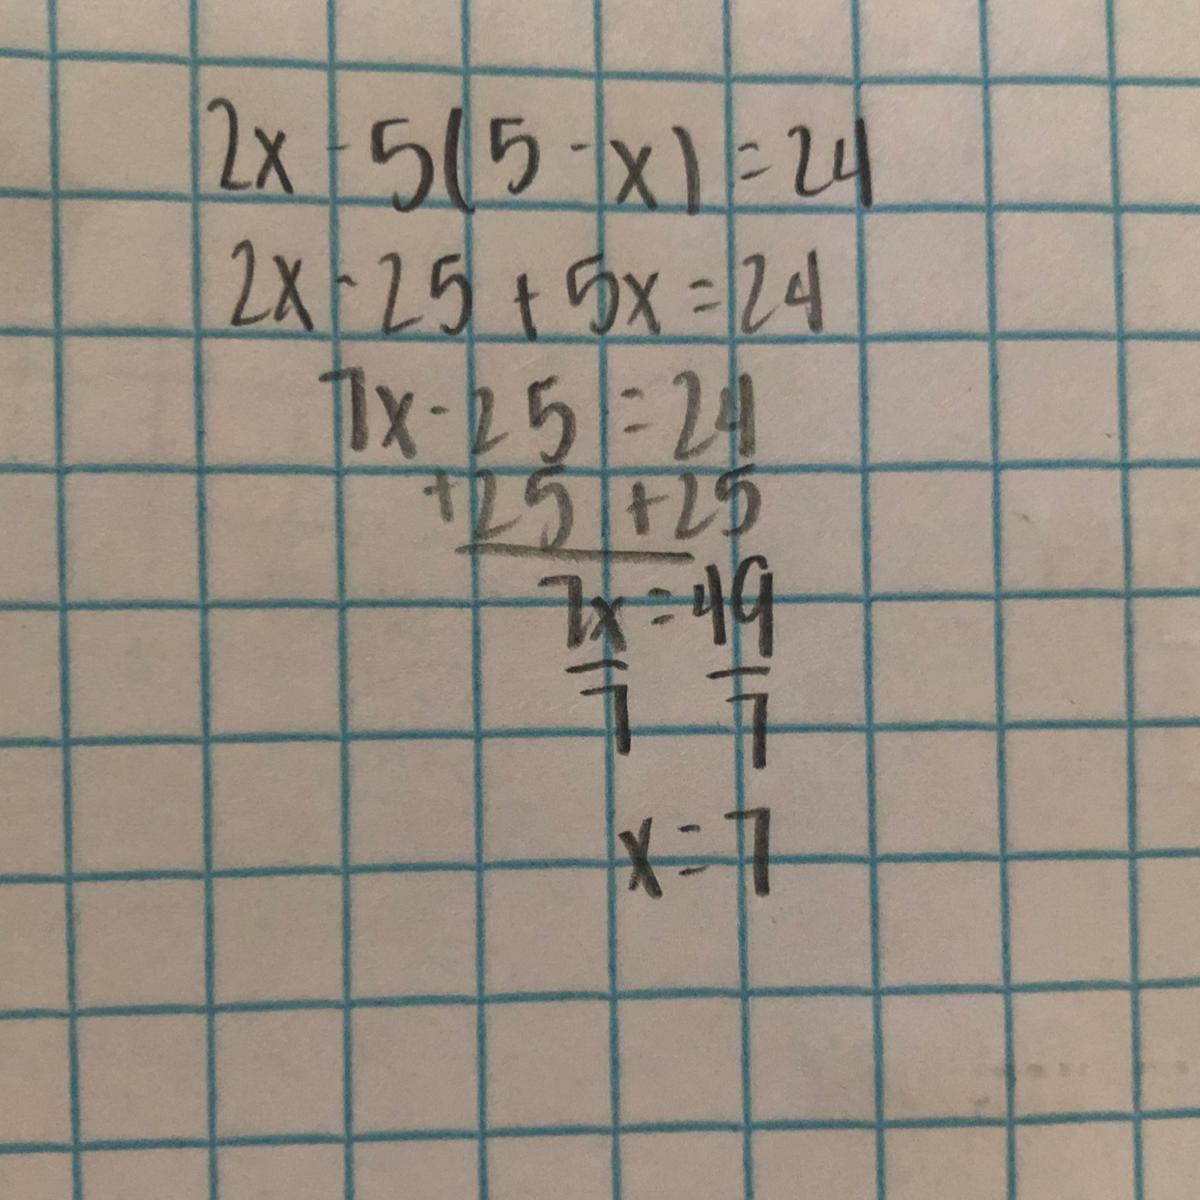 2x - 5(5 - x) = 24
2x - 25 + 5x = 24
7x - 25 = 24
+25 +25
7x = 49
7 7
x = 7